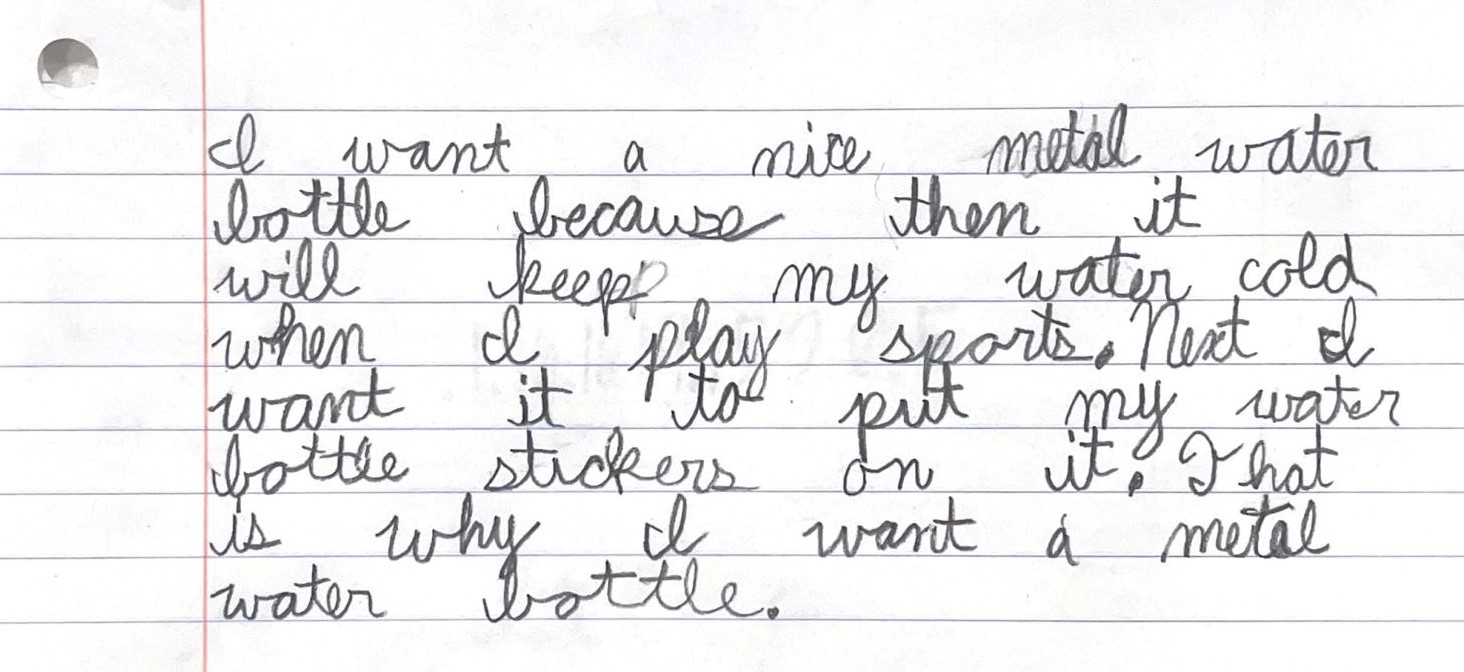 I want a nice metal water
bottle because then it
will keep my water cold
when I play sports. Next I
want it to put my water
bottle stickers on it. That
is why I want a metal
water bottle.